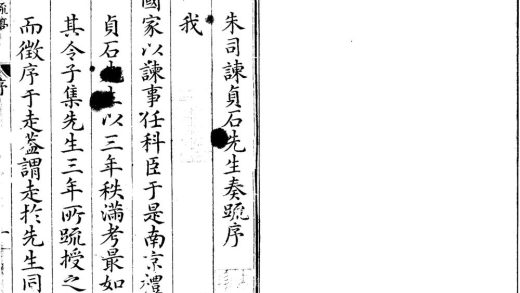 朱司諫貞石先生奏疏序
我
國家以諫事任科臣于是南京禮
貞石先生以三年秩滿考最如
其令子集先生三年所疏授之
而徵序于走蓋謂走於先生同
序
一